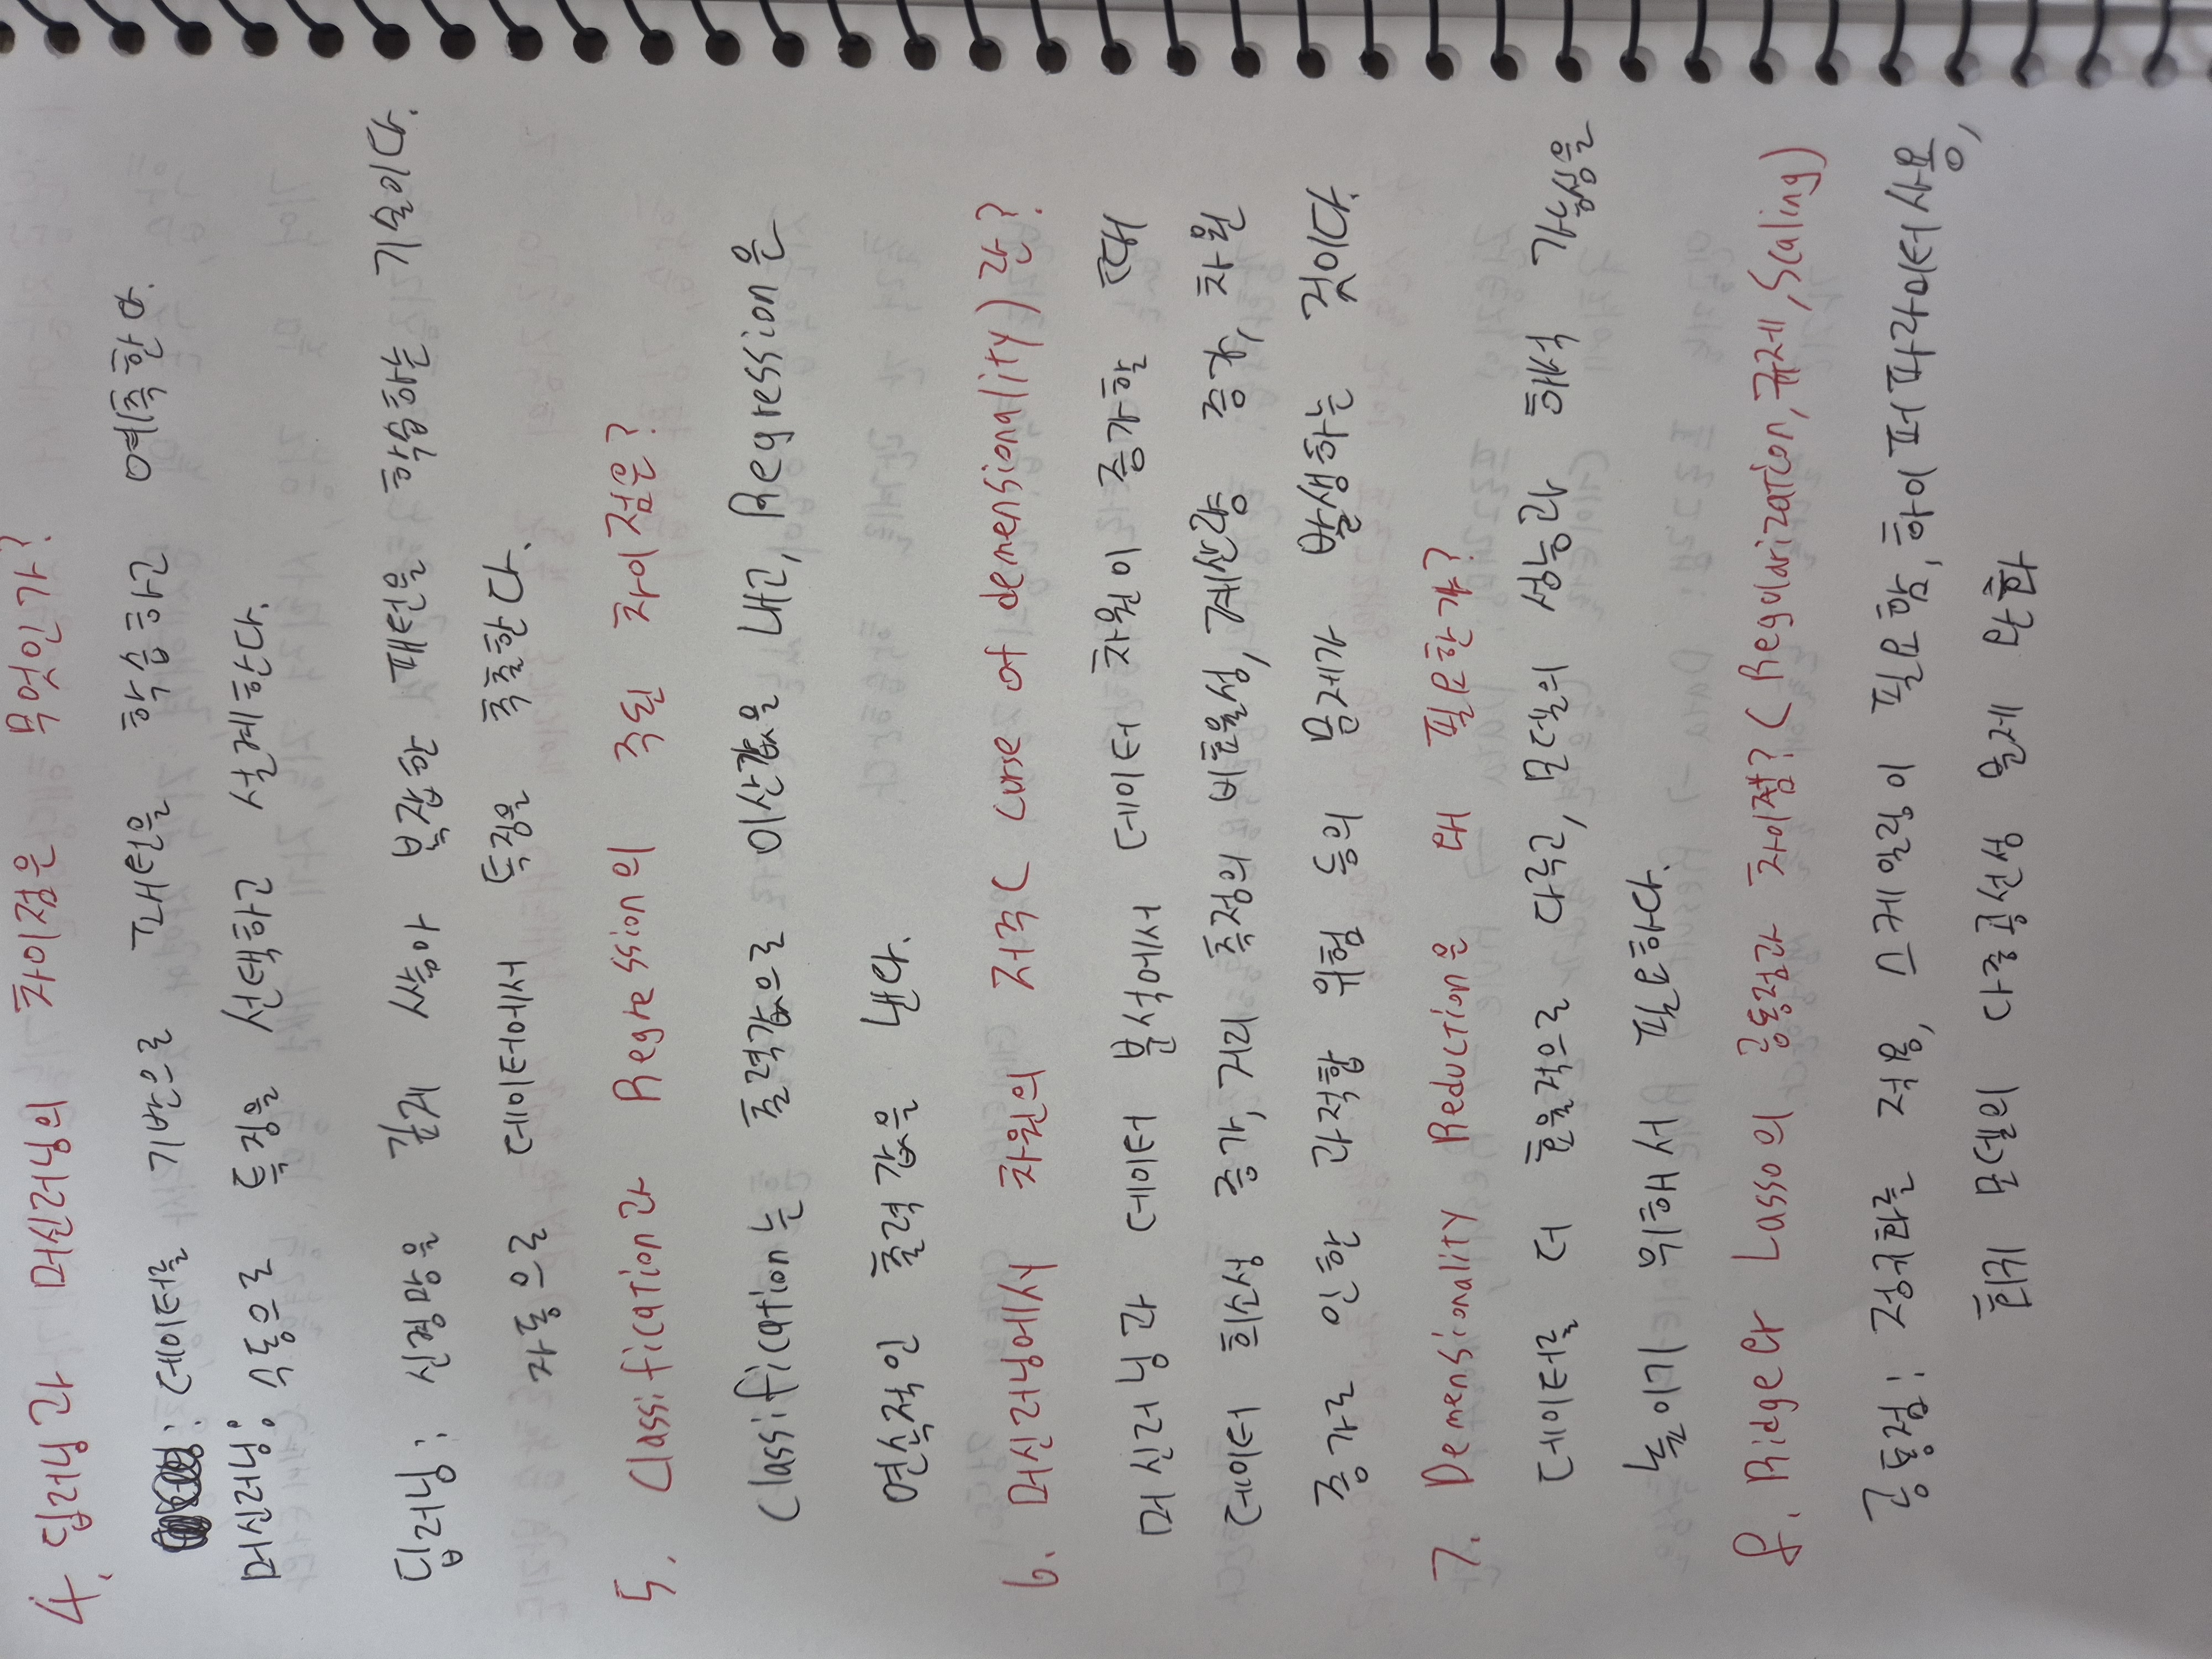 4. 딥러닝과 머신러닝의 차이점은 무엇인가?
: 데이터를 기반으로 패턴을 학습하고 예측한다.
머신러닝: 수동으로 특징을 선택하고 설계한다.
딥러닝: 신경망을 깊게 쌓아 복잡한 패턴을 학습하는 기술이다.
자동으로 데이터에서 특징을 추출한다.
5. Classification과 Regression의 주된 차이점은?
Classification는 출력값으로 이산값을 내고, Regression은
연속적인 출력값을 낸다.
6. 머신러닝에서 차원의 저주( curse of demensionality)란?
머신러닝과 데이터 분석에서 데이터 차원이 증가할 때
데이터 희소성 증가, 거리 측정의 비효율성, 계산량 증가, 차원
증가로 인한 과적합 위험 등의 문제가 발생하는 것이다.
7. Demensionality Reduction은 왜 필요한가?
데이터를 더 효율적으로 다루고, 모델의 성능과 해석 가능성을
높이기 위해서 필요하다.
8. Ridge와 Lasso의 공통점과 차이점? (Regularization, 규제, Scaling)
공통점: 정규화를 적용, 스케일링이 필요함, 하이퍼파라미터 사용,
회귀 모델의 다중공선성 문제 완화